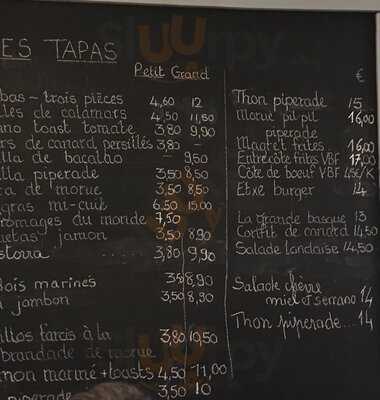 ES TAPAS
Petit Grand
bas - trois pièces 4,60 12
lles de calamars 4,50 11,50
ano toast tomate 3,80 9,90
rs de canard persillés 3,80 -
lla de bacalao - 9,50
lla piperade 3,50 8,50
ra de morue 3,50 8,50
gras mi-cuit 6,50 15,00
romages du monde 7,50
uetas jamon 3,50 8,90
storra 3,80 9,90
Bois marinés 3,50 8,90
n jambon 3,50 8,90
illos farcis à la 3,80 10,50
brandade de morue
mon mariné + toasts 4,50 11,00
piperade 3,50 10
€
Thon piperade 15
Morue pil pil 16,00
piperade
Magret frites 16,00
Entrecôte frites VBF 17,00
Côte de boeuf VBF 45€/K
Etxe burger 14
La grande basque 13
Confit de canard 14,50
Salade landaise 14,50
Salade chèvre
miel et serrano 14
Thon piperade... 14